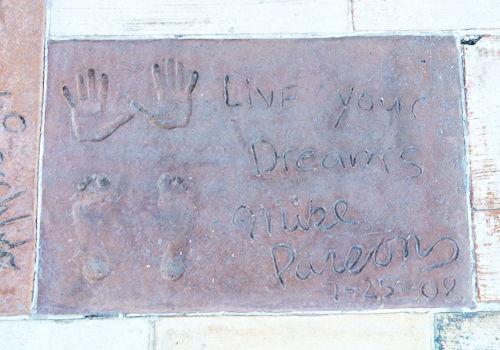 Live your
Dreams
Mike
Parsons
7-25-08